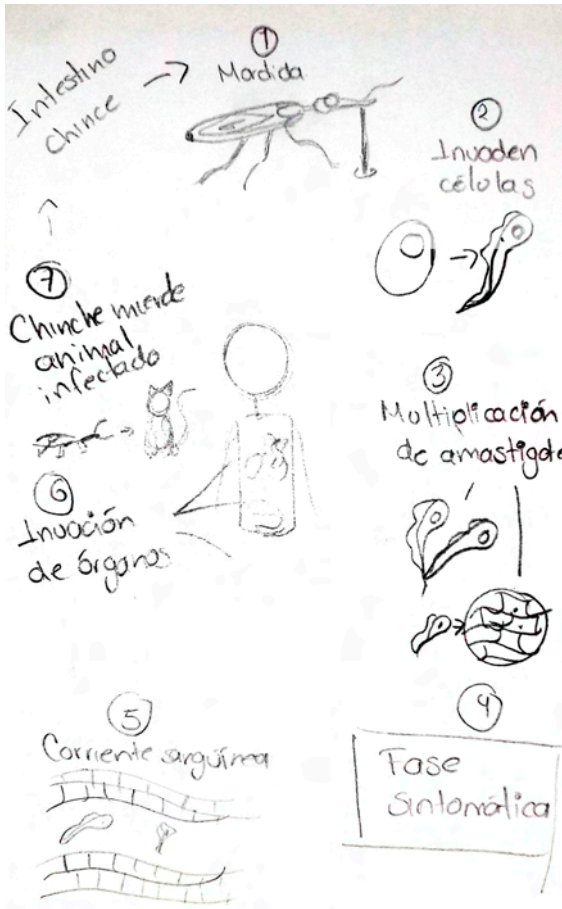 Intestino
chince
1
Mordida
2
Invaden
células
3
Moltiplicación
de amastigote
4
Fase
sintomática
5
Corriente sanguínea
6
Invación
de órganos
7
Chinche muerde
animal
infectado